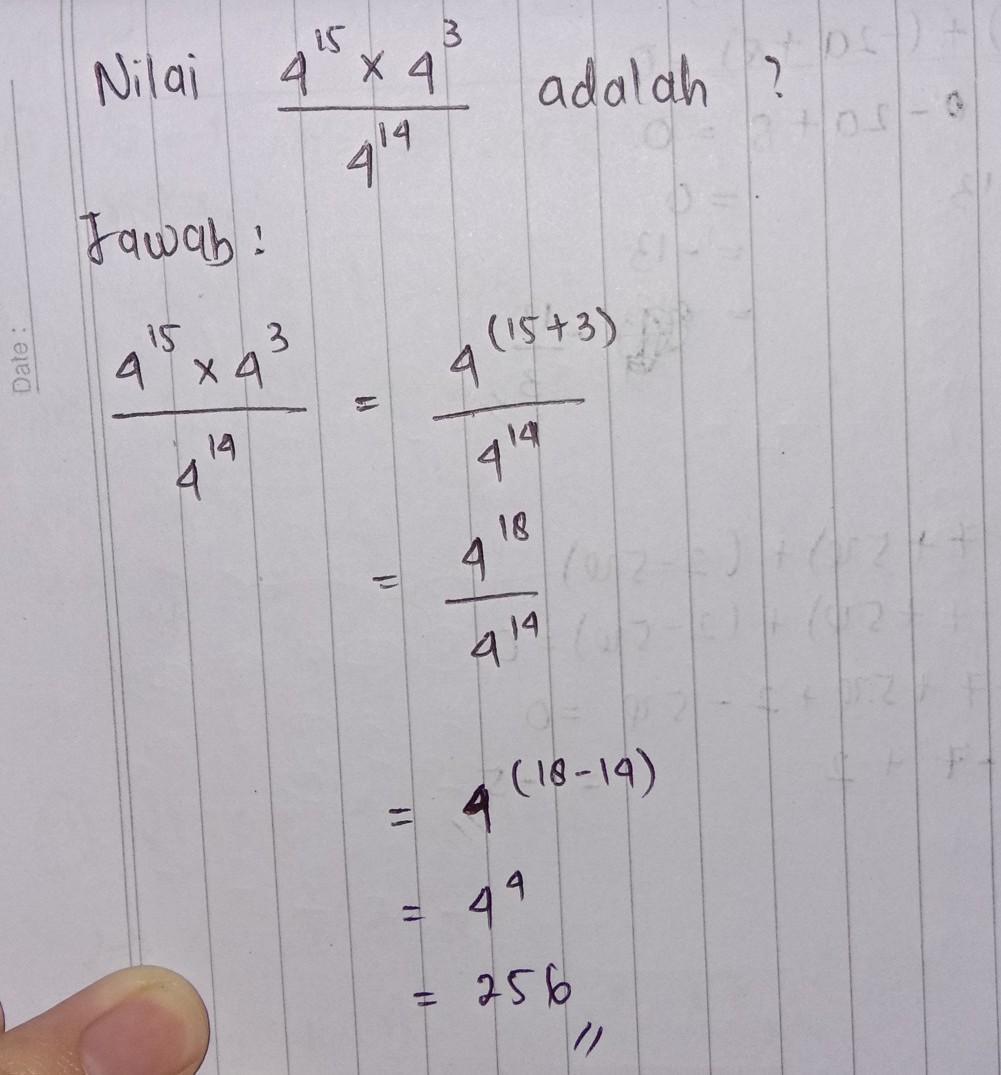 Nilai 4^15 × 4^3 / 4^14 adalah ?
Jawab :
4^15 × 4^3 / 4^14 = 4^(15+3) / 4^14
= 4^18 / 4^14
= 4^(18-14)
= 4^4
= 256 //
Date :